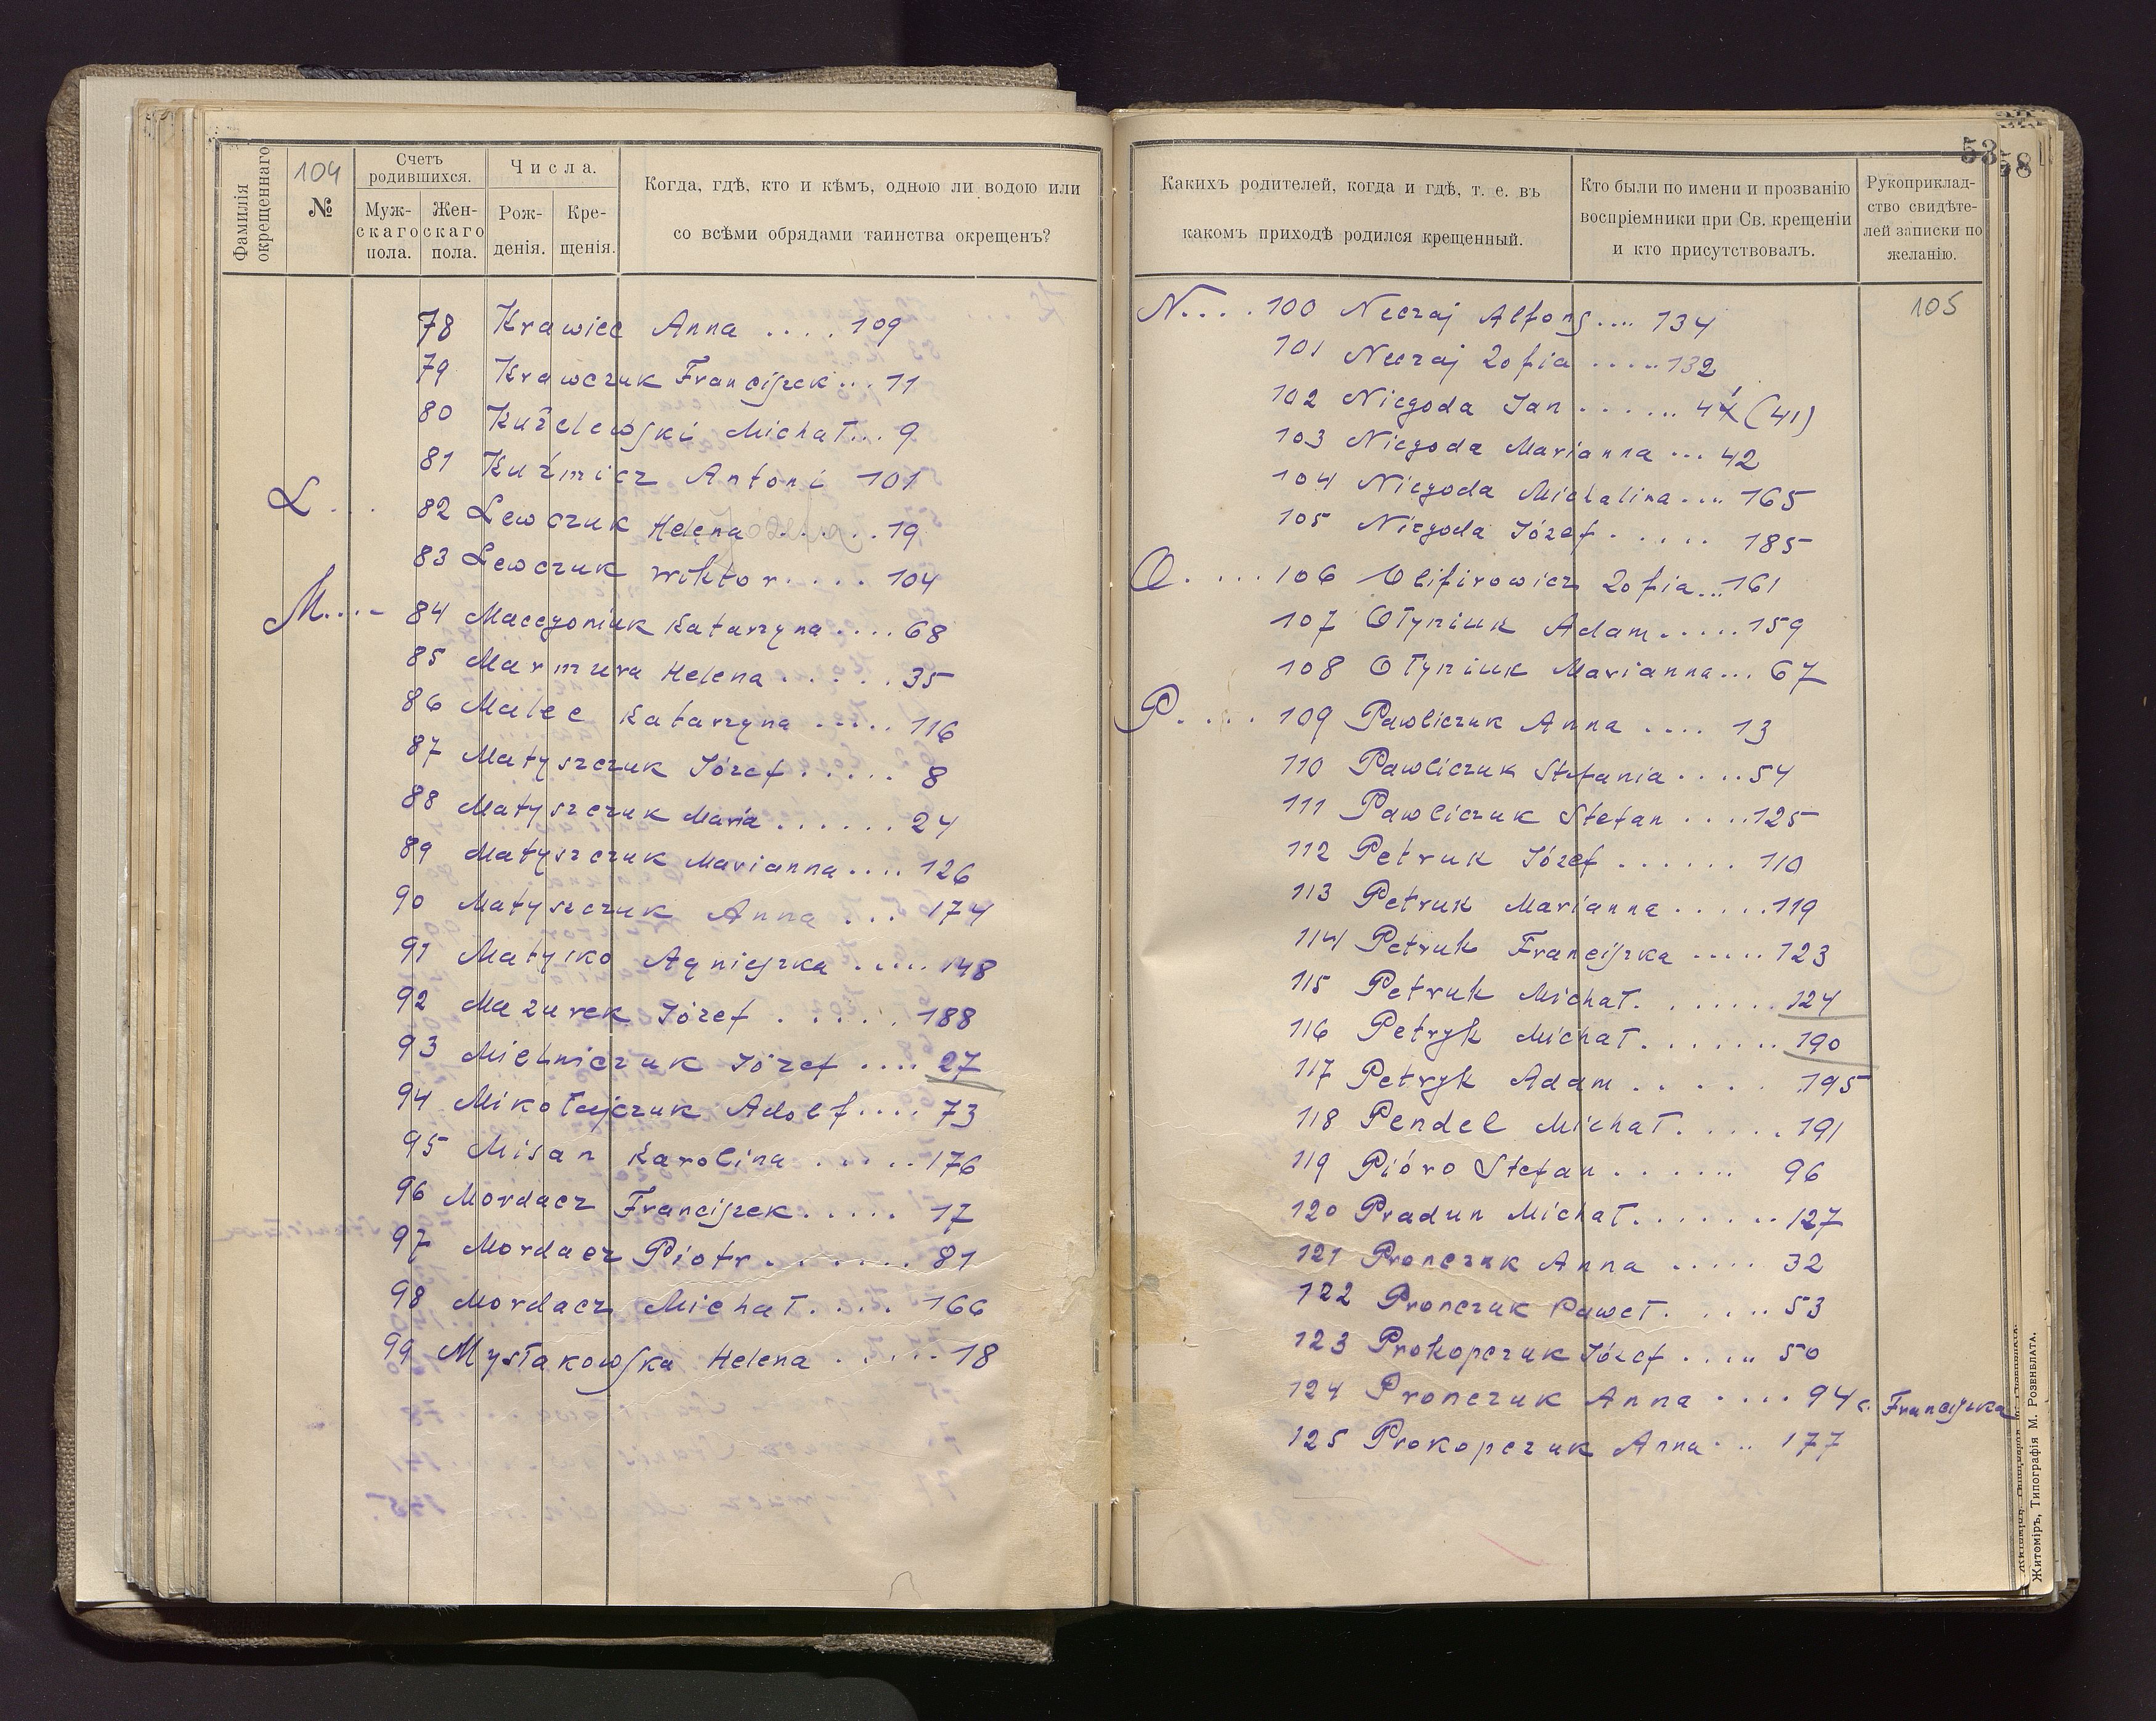 Фамилія окрещеннаго
104
№
Счетъ родившихся.
Муж-скаго пола.
Жен-скаго пола.
Числа.
Рож-денія.
Кре-щенія.
Когда, гдѣ, кто и кѣмъ, одною ли водою или
со всѣми обрядами таинства окрещенъ?
78 Krawiec Anna .... 109
79 Krawczuk Franciszek... 11
80 Kużelewski Michał... 9
81 Kuźmicz Antoni 101
L... 82 Lewczuk Helena ...... 19
83 Lewczuk Wiktor.... 104
M.... 84 Macegoniuk Katarzyna .... 68
85 Marmura Helena ...... 35
86 Malec Katarzyna ..... 116
87 Matyszczuk Józef ..... 8
88 Matyszczuk Maria ...... 24
89 Matyszczuk Marianna .... 126
90 Matyszczuk Anna ... 174
91 Matysko Agnieszka ..... 148
92 Mazurek Józef ..... 188
93 Mielniczuk Józef .... 27
94 Mikołajczuk Adolf.... 73
95 Misan Karolina ..... 176
96 Mordacz Franciszek..... 17
97 Mordacz Piotr....... 81
98 Mordacz Michał.... 166
99 Mysłakowska Helena ..... 18
53
58
Какихъ родителей, когда и гдѣ, т. е. въ
какомъ приходѣ родился крещенный.
Кто были по имени и прозванію
воспріемники при Св. крещеніи
и кто присутствовалъ.
Рукоприклад-
ство свидѣте-
лей записки по
желанію.
105
N.... 100 Neczaj Alfons.... 134
101 Neczaj Zofia ..... 132
102 Niegoda Jan ...... 44 (41)
103 Niegoda Marianna ... 42
104 Niegoda Michalina.... 165
105 Niegoda Józef ..... 185
O..... 106 Olifirowicz Zofia... 161
107 Ołyniuk Adam..... 159
108 Ołyniuk Marianna... 67
P..... 109 Pawliczuk Anna .... 13
110 Pawliczuk Stefania .... 54
111 Pawliczuk Stefan .... 125
112 Petruk Józef ...... 110
113 Petruk Marianna ..... 119
114 Petruk Franciszka ..... 123
115 Petruk Michał....... 124
116 Petryk Michał....... 190
117 Petryk Adam ..... 195
118 Pendel Michał..... 191
119 Pióro Stefan ...... 96
120 Pradun Michał....... 127
121 Pronczuk Anna ..... 32
122 Pronczuk Paweł..... 53
123 Prokopczuk Józef .... 50
124 Pronczuk Anna .... 94 c. Franciszka
125 Prokopczuk Anna... 177
Житоміръ, Типографія М. Розенблата.